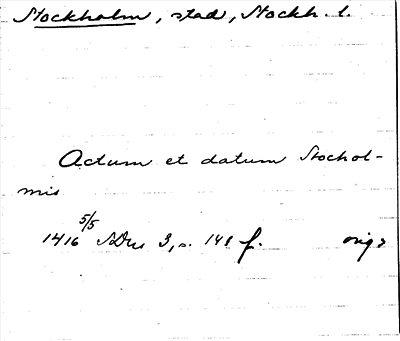 Stockholm, stad, Stockh. l.
Actum et datum Stochol-
mis
1416 5/5 SDns 3, s. 141 f. orig.